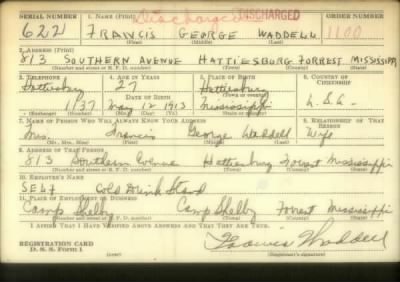 SERIAL NUMBER 1. NAME (Print) Discharged DISCHARGED ORDER NUMBER
622 FRANCIS GEORGE WADDELL 1100
(First) (Middle) (Last)
2. ADDRESS (Print)
813 SOUTHERN AVENUE HATTIESBURG FORREST MISSISSIPPI
(Number and street or R. F. D. number) (Town) (County) (State)
3. TELEPHONE 4. AGE IN YEARS 5. PLACE OF BIRTH 6. COUNTRY OF CITIZENSHIP
Hattiesburg 27 Hattiesburg
DATE OF BIRTH (Town or county)
1137 May 12 1913 Mississippi U.S.A.
7. NAME OF PERSON WHO WILL ALWAYS KNOW YOUR ADDRESS 8. RELATIONSHIP OF THAT PERSON
Mrs. Francis George Waddell Wife
(Mr., Mrs., Miss) (First) (Middle) (Last)
9. ADDRESS OF THAT PERSON
813 Southern Avenue Hattiesburg Forrest Mississippi
(Number and street or R. F. D. number) (Town) (County) (State)
10. EMPLOYER'S NAME
SELF Cold Drink Stand
11. PLACE OF EMPLOYMENT OR BUSINESS
Camp Shelby Camp Shelby Forrest Mississippi
(Number and street or R. F. D. number) (Town) (County) (State)
I AFFIRM THAT I HAVE VERIFIED ABOVE ANSWERS AND THAT THEY ARE TRUE.
REGISTRATION CARD
D. S. S. Form 1 Francis Waddell
(over) (Registrant's signature)